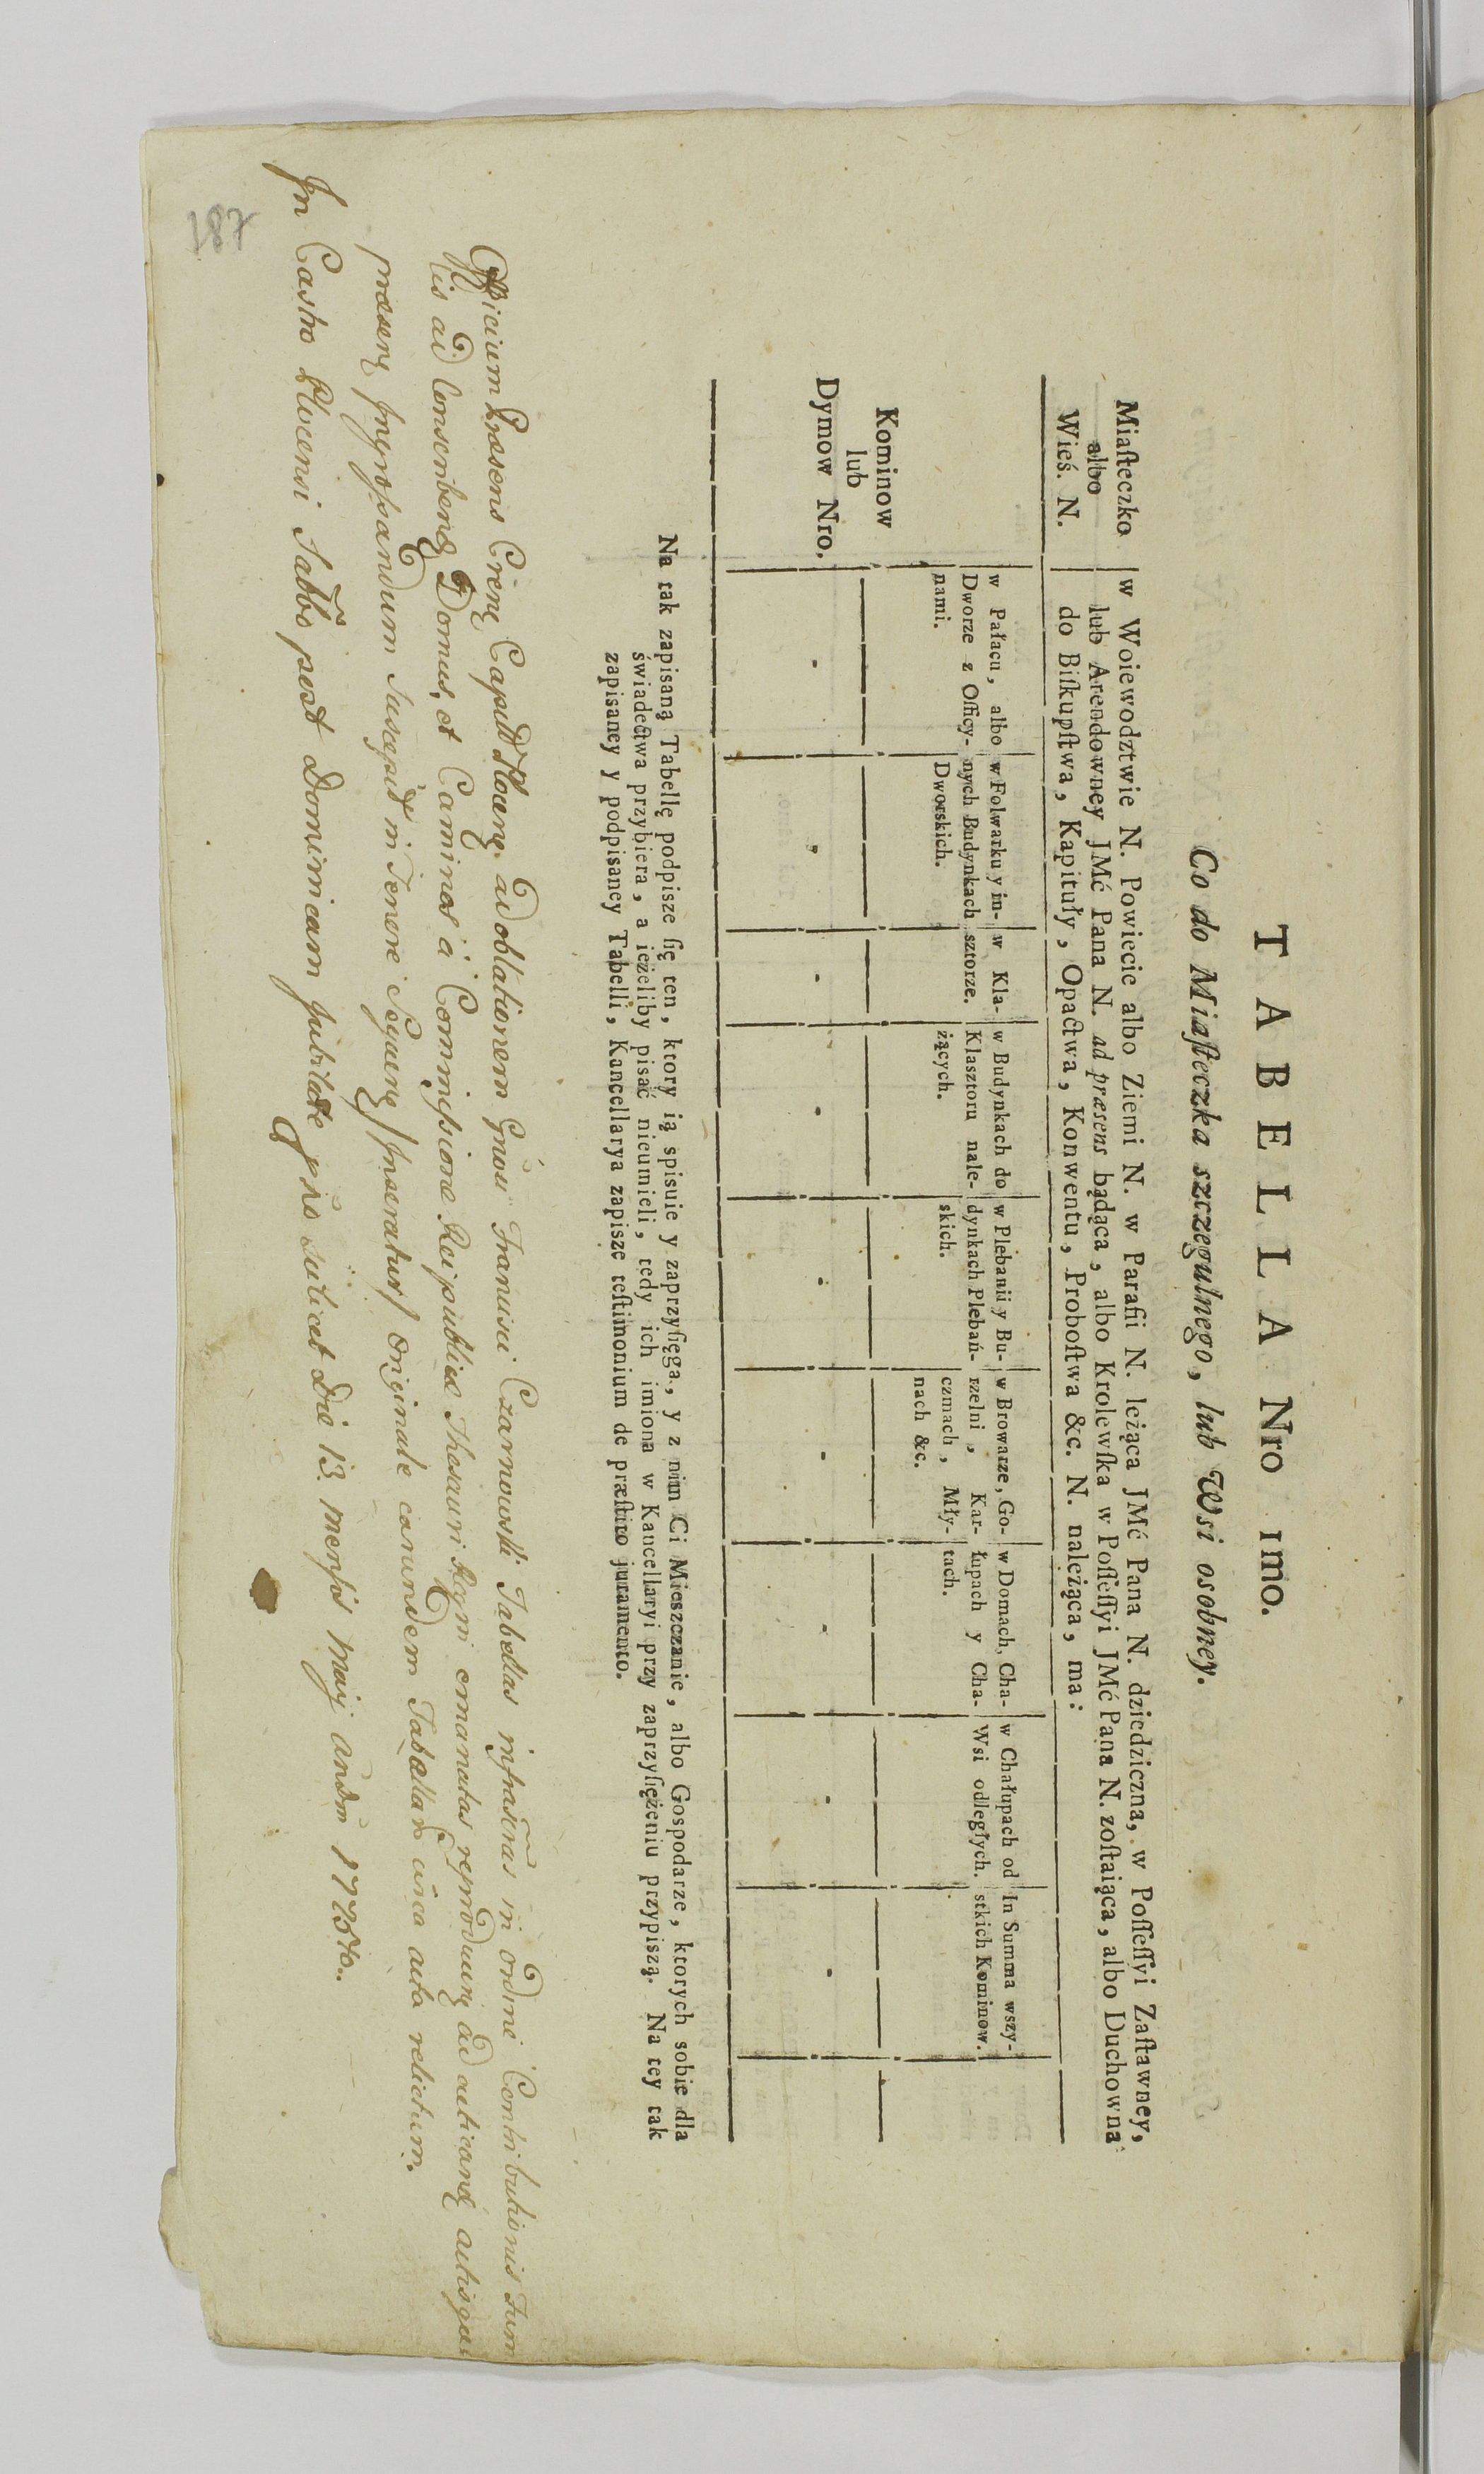 TABELLA Nro 1mo.
Co do Miaſteczka szczegulnego, lub Wsi osobney.
Miaſteczko
albo
Wieś. N.
w Woiewodztwie N. Powiecie albo Ziemi N. w Parafii N. leżąca JMć Pana N. dziedziczna, w Poſſeſſyi Zaſtawney,
lub Arendowney JMć Pana N. ad præsens bądąca, albo Krolewſka w Poſſeſſyi JMć Pana N. zoſtaiąca, albo Duchowna
do Biſkupſtwa, Kapituły, Opactwa, Konwentu, Proboſtwa &c. N. należąca, ma:
Kominow
lub
Dymow Nro.
w Pałacu, albo
Dworze z Officy-
nami.
w Folwarku y in-
nych Budynkach
Dworskich.
w Kla-
sztorze.
w Budynkach do
Klasztoru nale-
żących.
w Plebanii y Bu-
dynkach Plebań-
skich.
w Browarze, Go-
rzelni, Kar-
czmach, Mły-
nach &c.
w Domach, Cha-
łupach y Cha-
tach.
w Chałupach od
Wsi odległych.
In Summa wszy-
stkich Kominow.
Na tak zapisaną Tabellę podpisze ſię ten, ktory ią spisuie y zaprzyſięga, y z nim Ci Mieszczanie, albo Gospodarze, ktorych sobie dla
świadectwa przybiera, a ieżeliby pisać nieumieli, tedy ich imiona w Kancellaryi przy zaprzyſiężeniu przypiszą. Na tey tak
zapisaney y podpisaney Tabelli, Kancellarya zapisze teſtimonium de præſtito juramento.
Officium Præsens ad oblationem Czarnowski Tabellas in ordine Contributionis
ad Domus, et Caminos a Commissione Reipublicæ Thesauri Regni emanatas ad
Ingrossandum Suscepit in Tenore originale earundem acta relictum.
In Castro Plocensi Sabbo post Dominicam Jubilate scilicet Die 13. mensis Maij
187